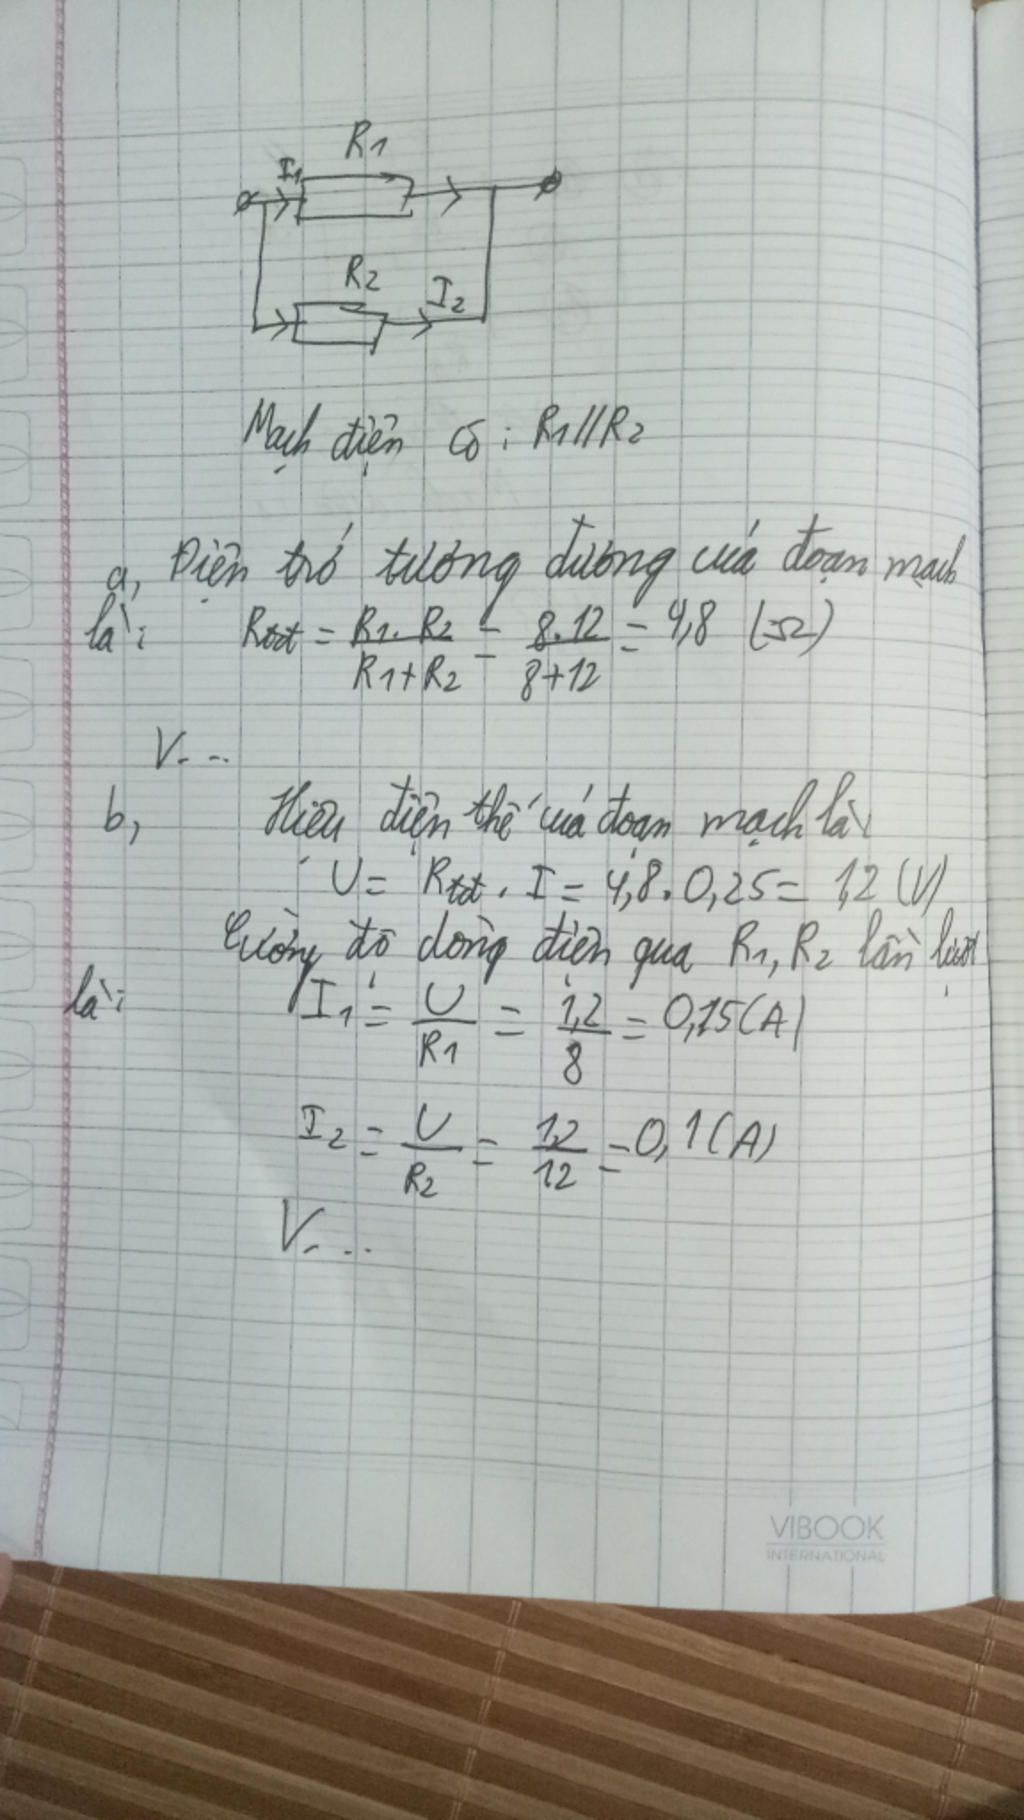 R1
I1
R2
I2
Mạch điện có: R1//R2
a, Điện trở tương đương của đoạn mạch
là: Rtđ = R1.R2 / R1+R2 = 8.12 / 8+12 = 4,8 (Ω)
V...
b, Hiệu điện thế của đoạn mạch là
U = Rtđ . I = 4,8.0,25 = 1,2 (V)
Cường độ dòng điện qua R1, R2 lần lượt
là: I1 = U / R1 = 1,2 / 8 = 0,15(A)
I2 = U / R2 = 1,2 / 12 = 0,1(A)
V...
VIBOOK
INTERNATIONAL